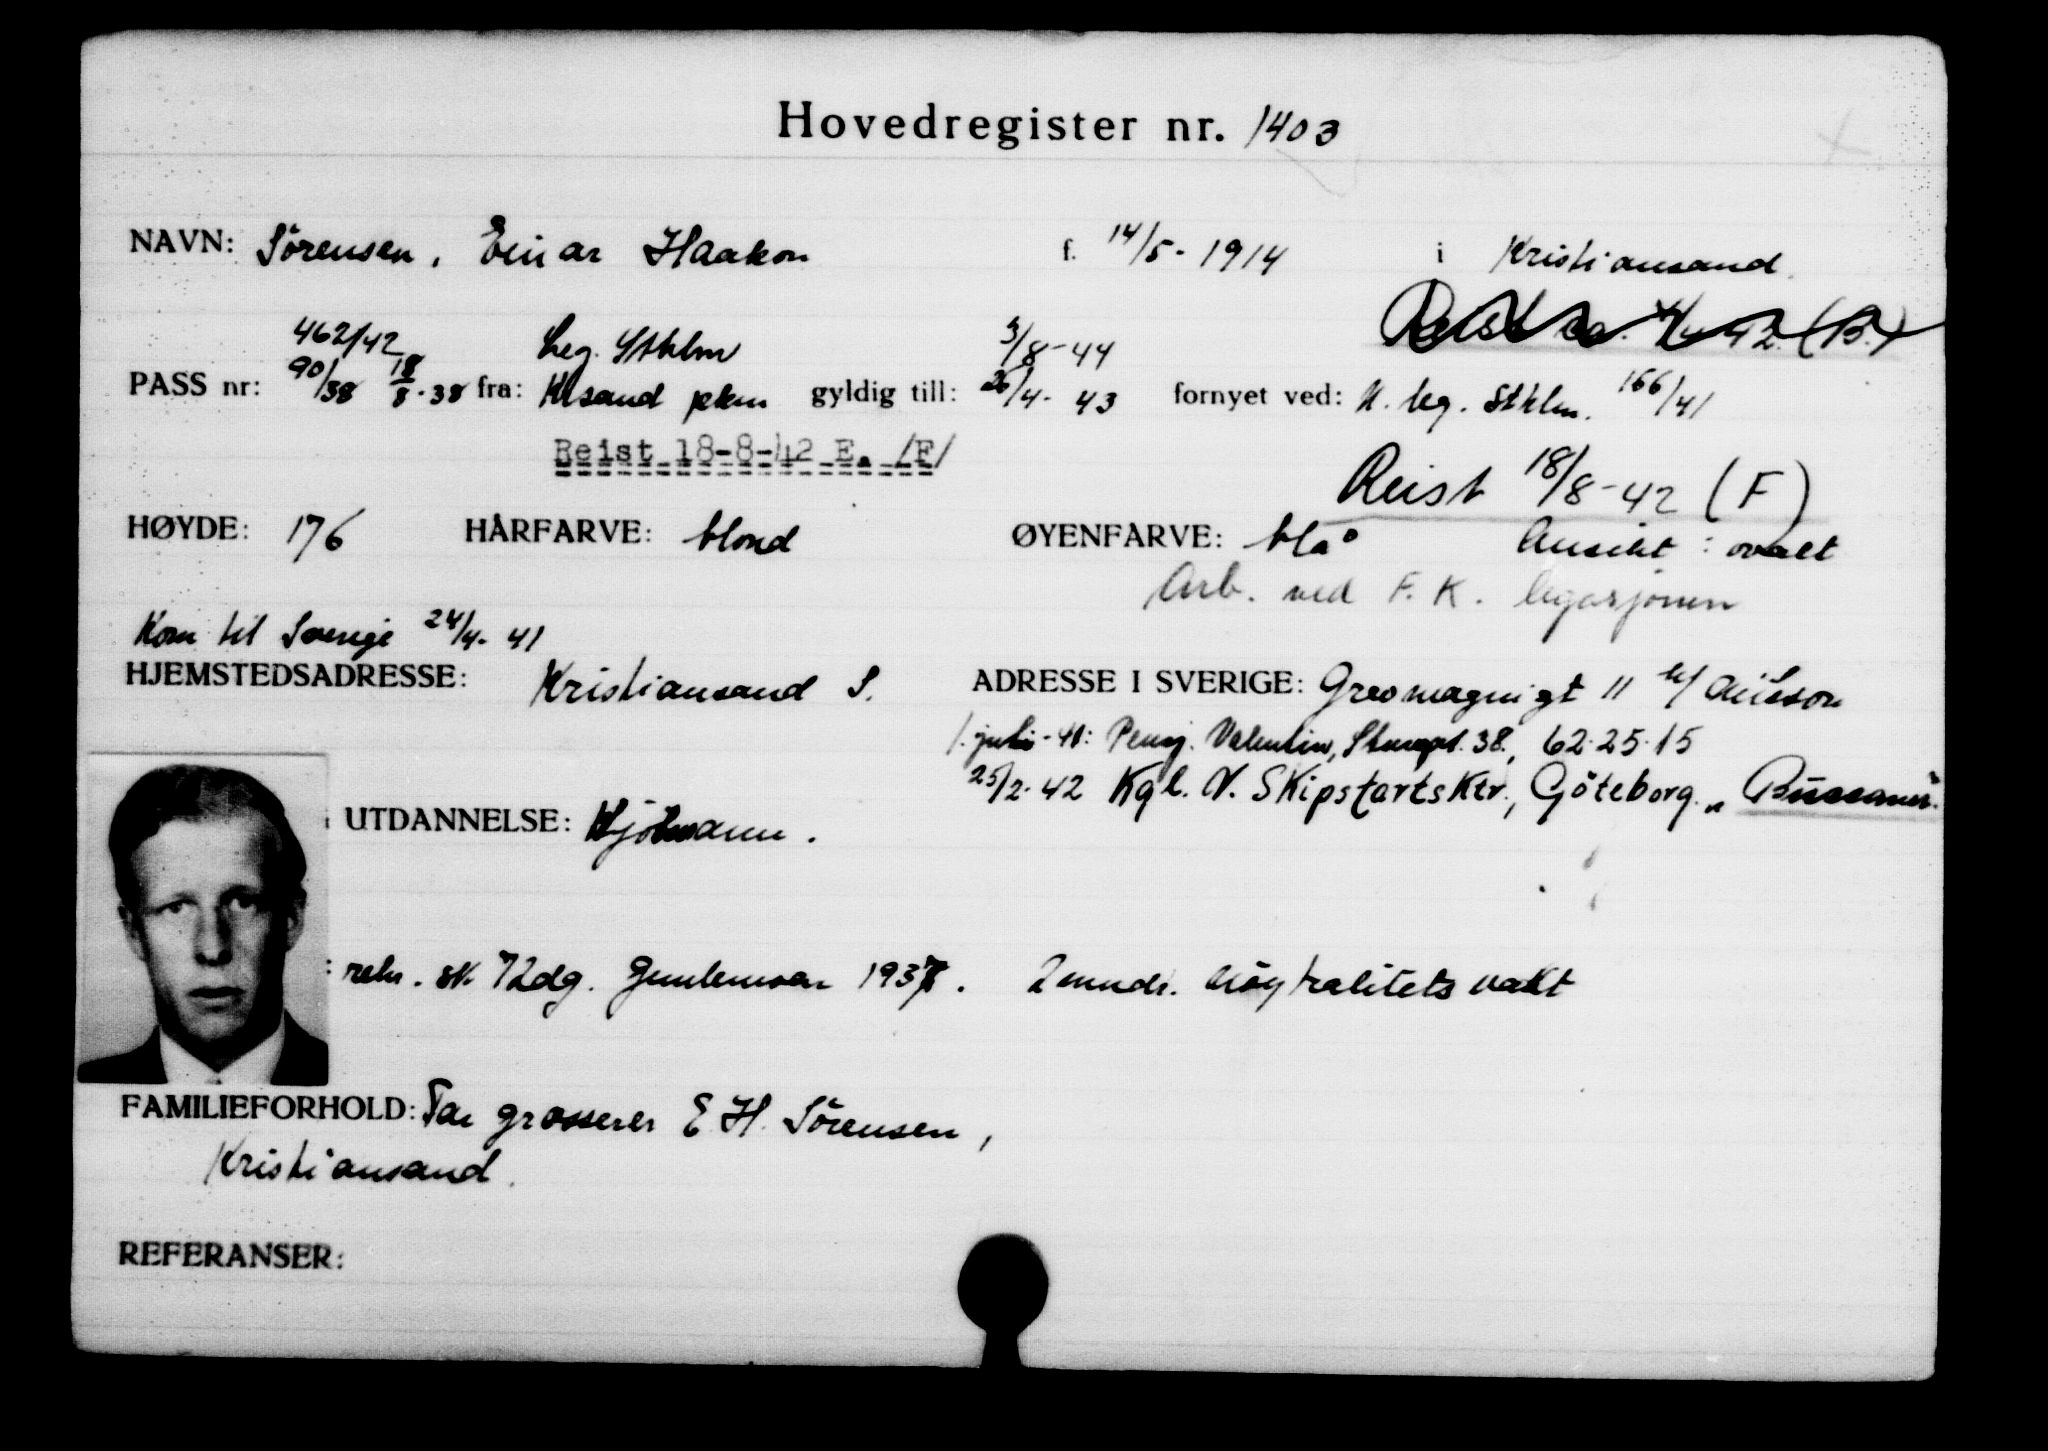 Hovedregister nr. 1403
NAVN: Sörensen, Einar Haakon f. 14/5-1914 i Kristiansand.
Reist 42. (B.)
462/42 Leg. Sthlm 3/8-44
PASS nr: 90/38 18/8-38 fra: Kr.sand pkm gyldig till: 26/4-43 fornyet ved: N. leg. Sthlm. 166/41
Reist 18-8-42 E. /F/
Reist 18/8-42 (F)
HØYDE: 176 HÅRFARVE: blond ØYENFARVE: blå Ansikt: ovalt
Arb. ved F. K. legasjonen
Kom til Sverige 24/4-41
HJEMSTEDSADRESSE: Kristiansand S. ADRESSE I SVERIGE: Grevmagnigt 11
1. juli-41: Pensj. Valentin, Sturegt. 38, 62.25.15
25/2-42 Kgl. N. Skipsfartsktr., Göteborg.
UTDANNELSE: Sjömann.
: rekr. sk 72dg. Gimlemoen 1937. 2 mndr. nöytralitetsvakt
FAMILIEFORHOLD: Far grosserer E. H. Sörensen,
Kristiansand.
REFERANSER: